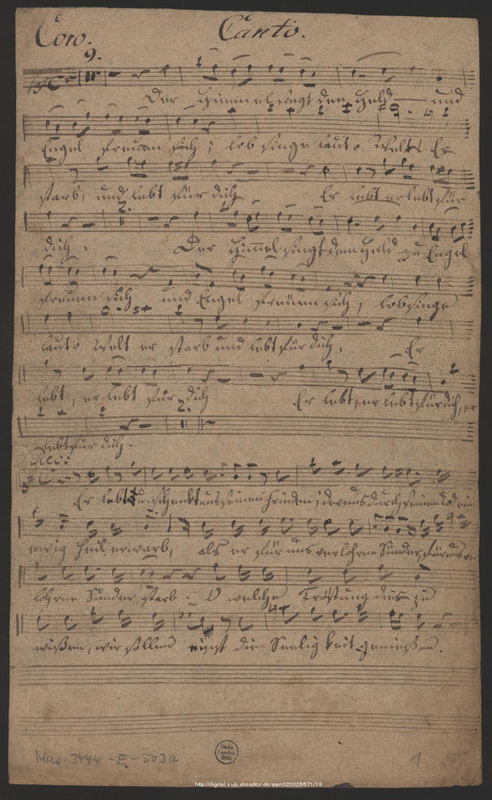 Coro. Canto.
9.
Der Himmel singt den Held und
Engel freuen sich; lobsinge laute Welt Er
starb, und lebt für dich. Er lebt er lebt für
dich. Der Himmel singt dem Held Engel
freuen sich und Engel freuen sich, lobsinge
laute Welt er starb und lebt für dich. Er
lebt, er lebt für dich Er lebt, er lebt für dich, er
lebt für dich.
Er lebt
ewig Heil erwarb, als er für uns verlohrne Sünder, für uns
lohrne Sünder starb. O welche Tröstung
wißen, wir sollen einst die Seeligkeit genießen.
Mus. 3444-E-503a 1
http://digital.slub-dresden.de/